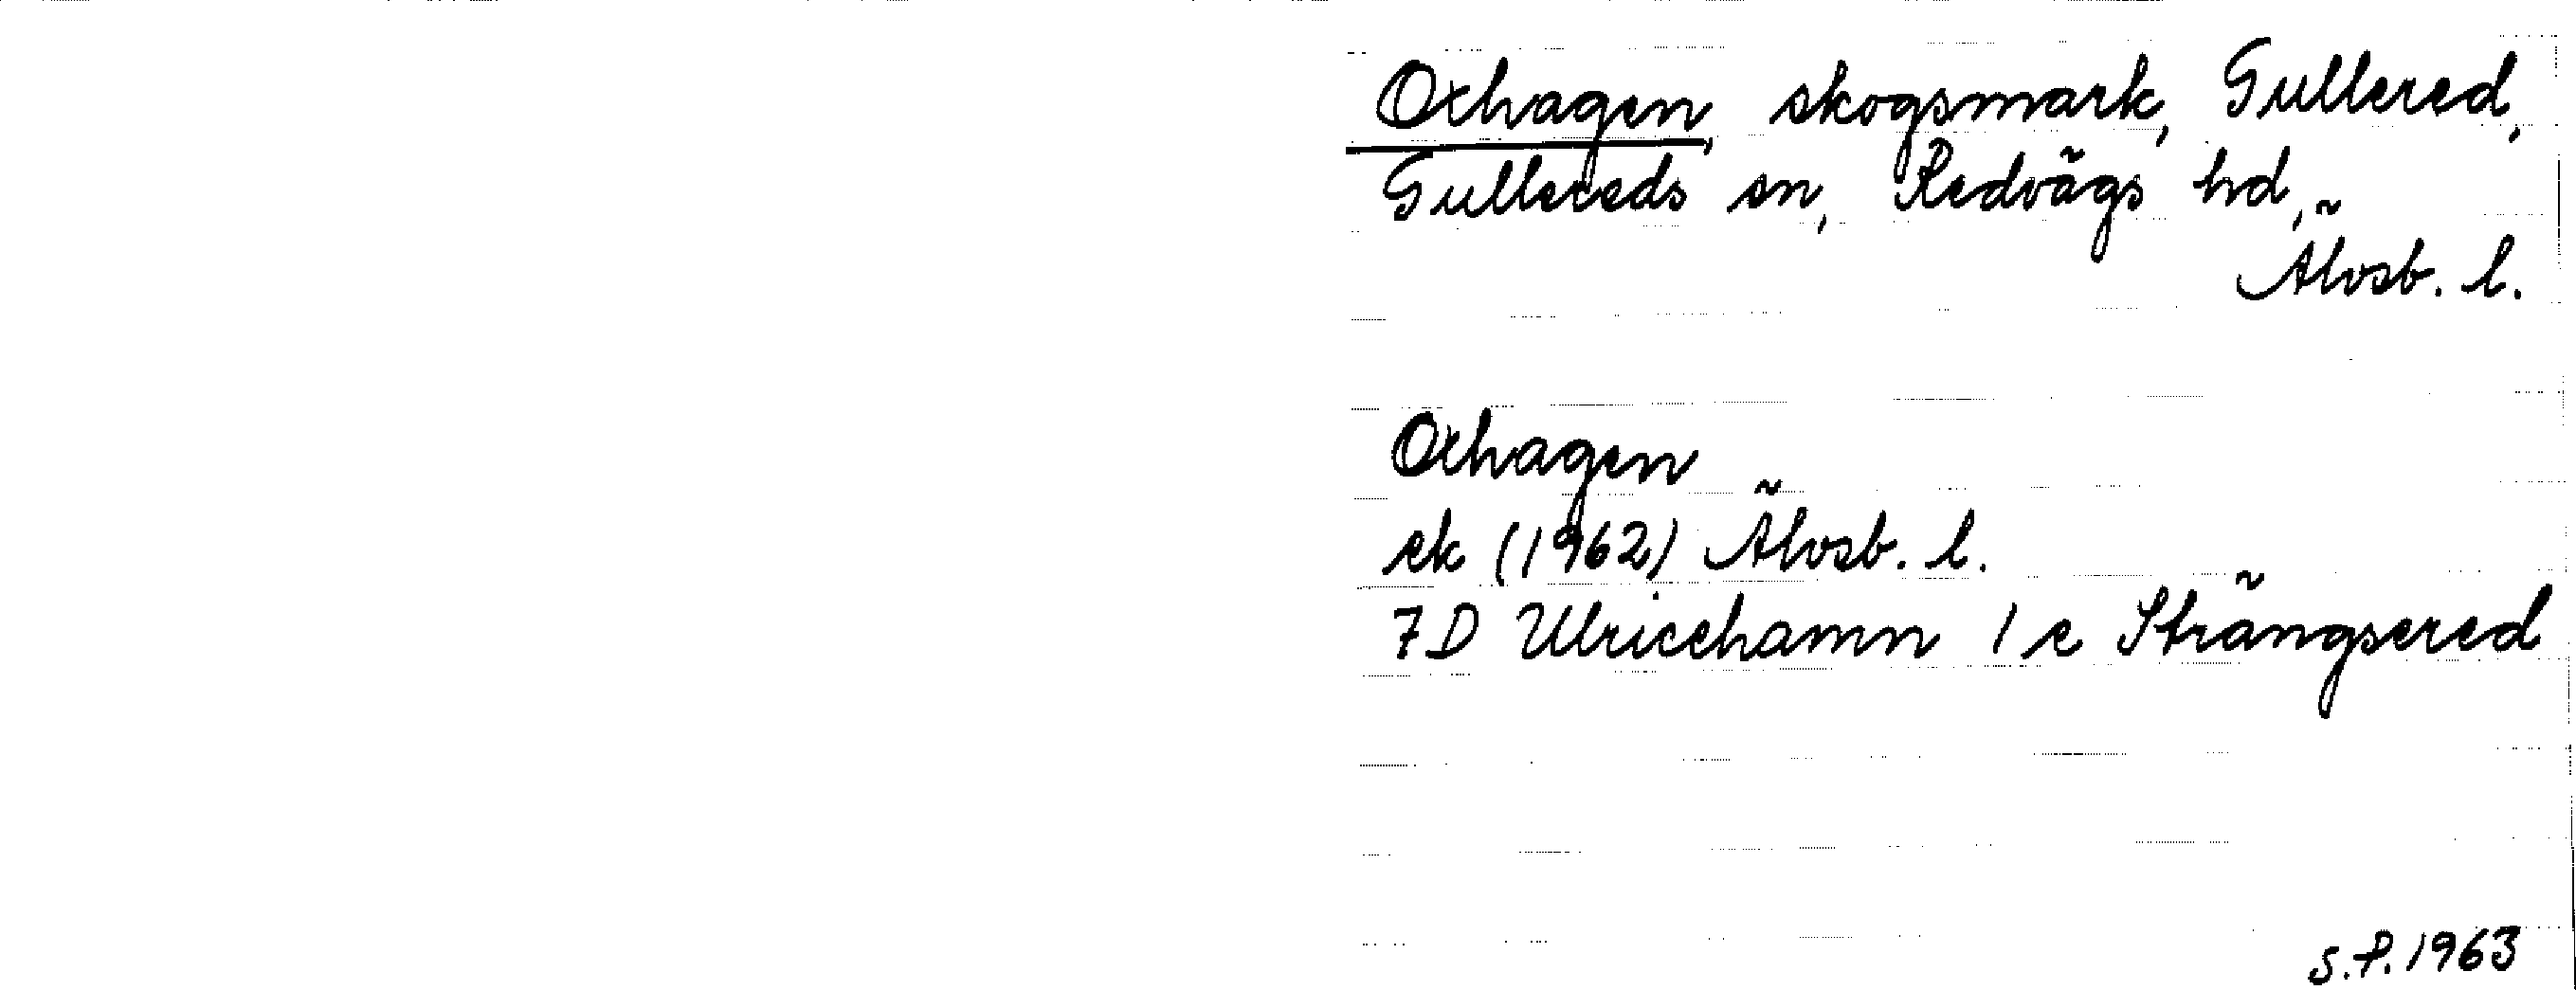 Oxhagen, skogsmark, Gullered,
Gullereds sn, Redvägs hd,
Älvsb. l.
Oxhagen
ek (1962) Älvsb. l.
7D Ulricehamn 1 e Strängsered
S.P. 1963